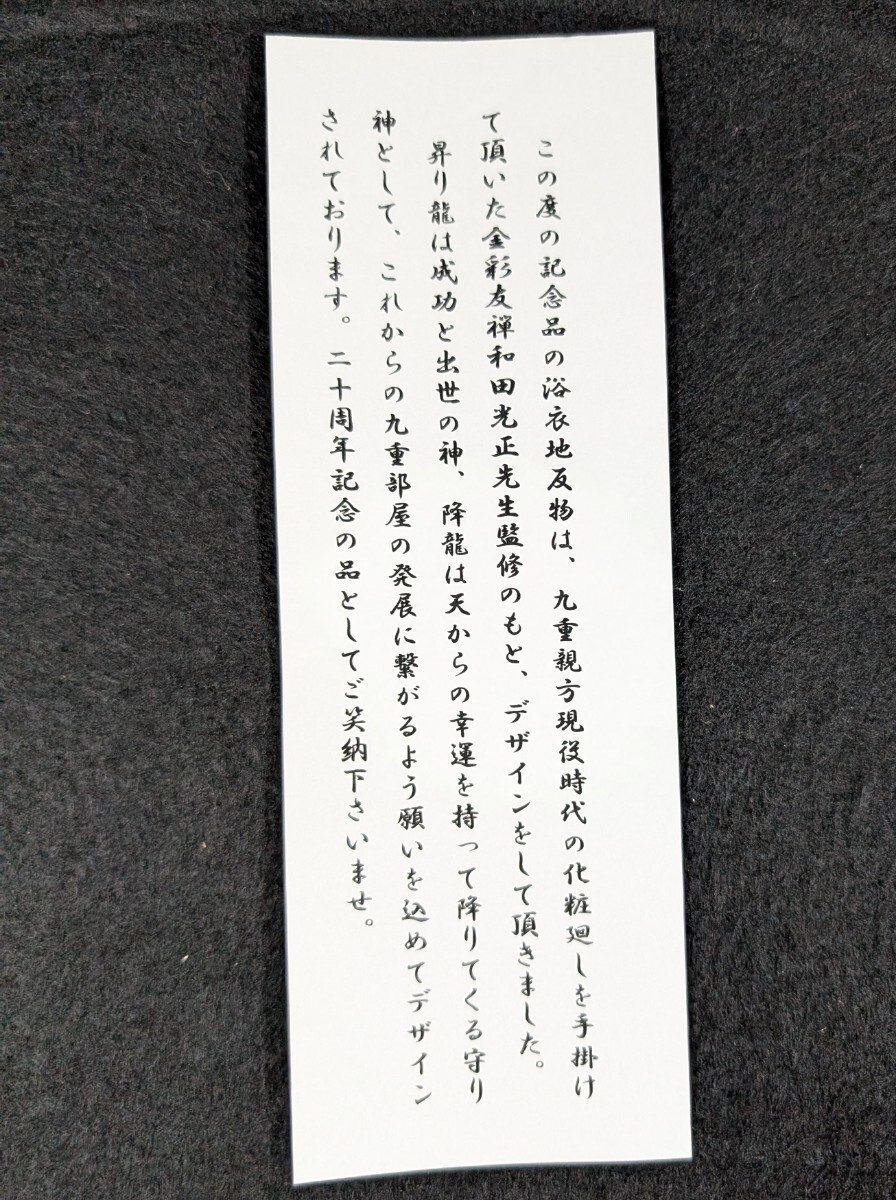 この度の記念品の浴衣地反物は、九重親方現役時代の化粧廻しを手掛け
て頂いた金彩友禅和田光正先生監修のもと、デザインをして頂きました。
昇り龍は成功と出世の神、降龍は天からの幸運を持って降りてくる守り
神として、これからの九重部屋の発展に繋がるよう願いを込めてデザイン
されております。二十周年記念の品としてご笑納下さいませ。